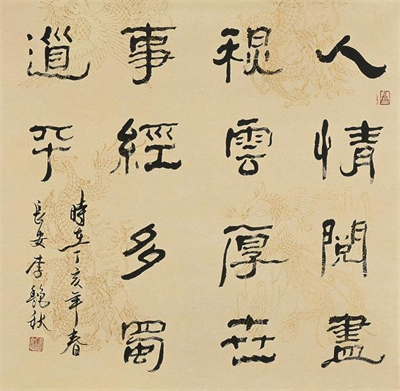 人情閱盡
雲厚世
事經多蜀
道平
時在丁亥年春
長安李魏秋